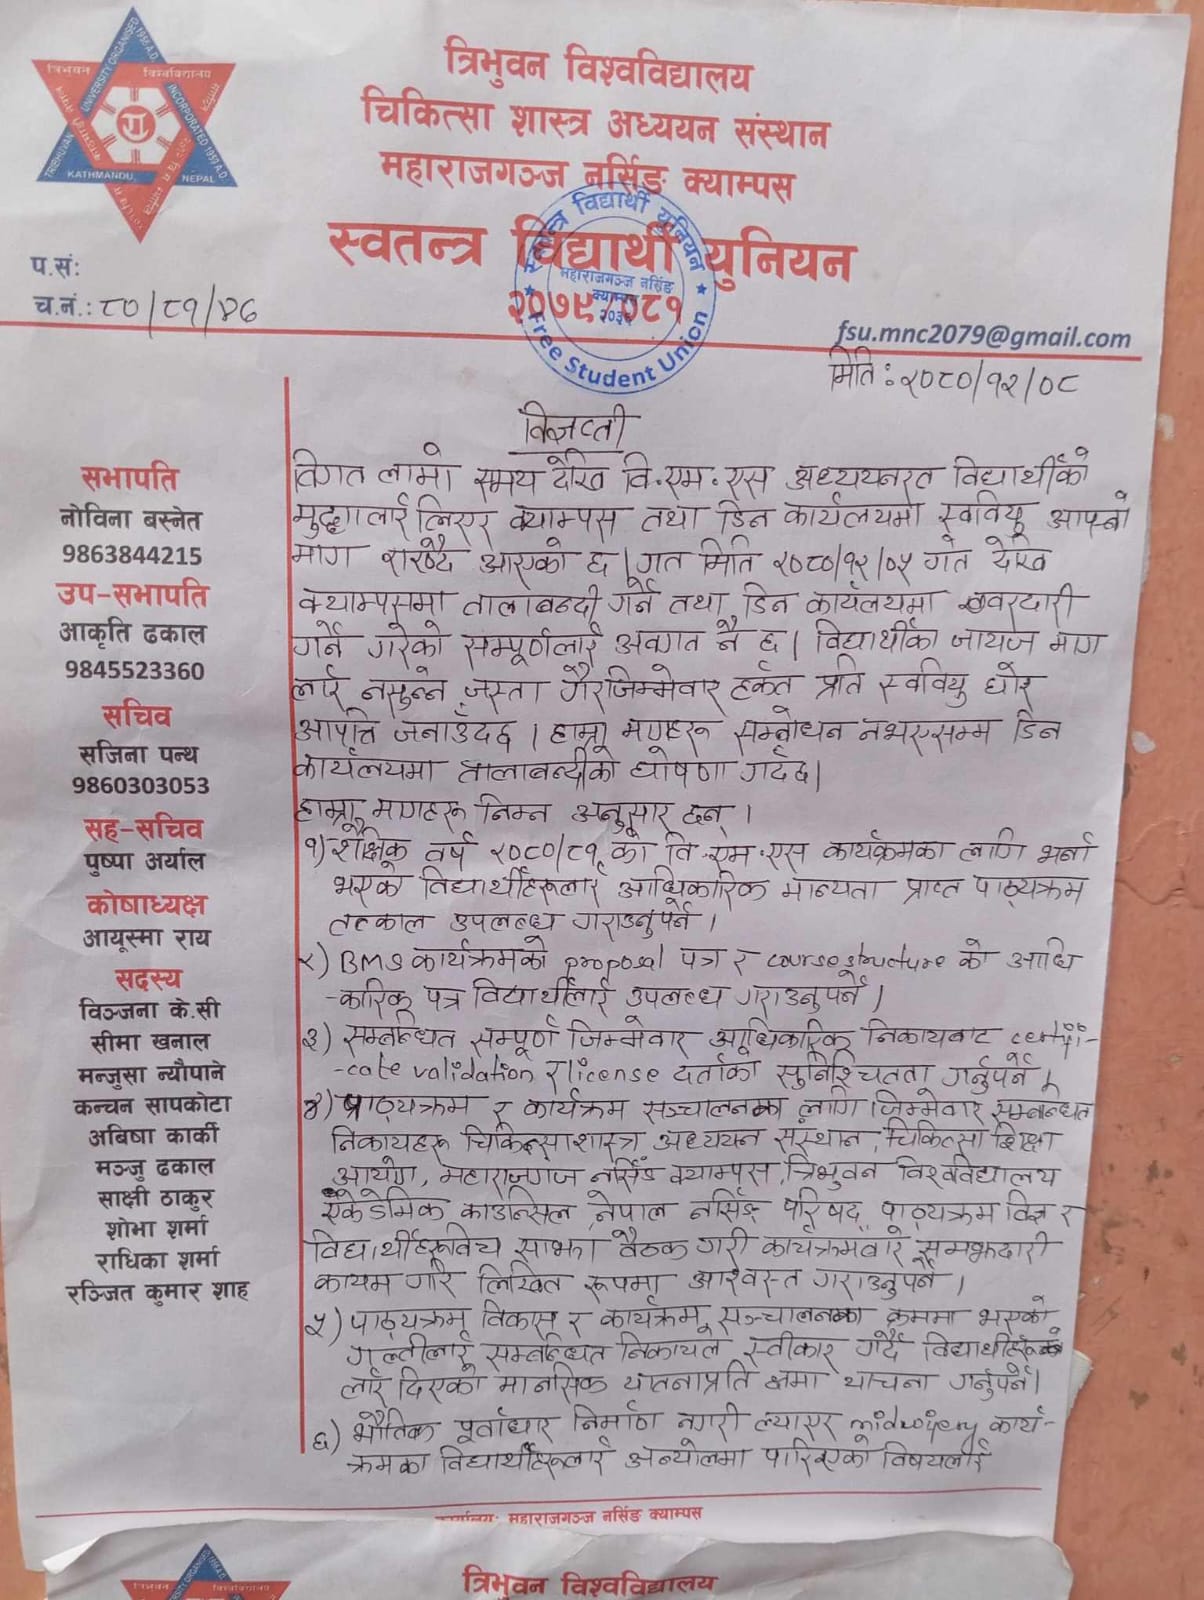 त्रिभुवन विश्वविद्यालय
चिकित्सा शास्त्र अध्ययन संस्थान
महाराजगञ्ज नर्सिङ क्याम्पस
स्वतन्त्र विद्यार्थी युनियन
२०७९/०८१
स्वतन्त्र विद्यार्थी युनियन
महाराजगञ्ज नर्सिङ
क्याम्पस
Free Student Union
त्रिभुवन विश्वविद्यालय
TRIBHUVAN UNIVERSITY ORGANISED 1956 A.D.
INCORPORATED 1959 A.D.
KATHMANDU, NEPAL
प.सं:
च.नं.: ८०/८१/४६
fsu.mnc2079@gmail.com
मिति: २०८०/१२/०८
सभापति
नोविना बस्नेत
9863844215
उप-सभापति
आकृति ढकाल
9845523360
सचिव
सजिना पन्थ
9860303053
सह-सचिव
पुष्पा अर्याल
कोषाध्यक्ष
आयूस्मा राय
सदस्य
विञ्जना के.सी
सीमा खनाल
मन्जुसा न्यौपाने
कन्चन सापकोटा
अबिषा कार्की
मञ्जु ढकाल
साक्षी ठाकुर
शोभा शर्मा
राधिका शर्मा
रञ्जित कुमार शाह
विज्ञप्ती
विगत लामो समय देखि वि.एम.एस अध्ययनरत विद्यार्थीको
मुद्दालाई लिएर क्याम्पस तथा डिन कार्यलयमा स्ववियू आफ्नो
माग राख्दै आएको छ। गत मिति २०८०/१२/०५ गते देखि
क्याम्पसमा तालाबन्दी गर्ने तथा डिन कार्यलयमा खवरदारी
गर्ने गरेको सम्पूर्णलाई अवगत नै छ। विद्यार्थीका जायज माग
लाई नसुन्ने जस्ता गैरजिम्मेवार हर्कत प्रति स्ववियु घोर
आपत्ति जनाउँदछ। हाम्रा मागहरू सम्बोधन नभएसम्म डिन
कार्यलयमा तालाबन्दीको घोषणा गर्दछ।
हाम्रा मागहरू निम्न अनुसार छन्।
१) शैक्षिक वर्ष २०८०/८१ को वि.एम.एस कार्यक्रमका लागि भर्ना
भएका विद्यार्थीहरूलाई आधिकारिक मान्यता प्राप्त पाठ्यक्रम
तत्काल उपलब्ध गराउनुपर्ने।
२) BMS कार्यक्रमको proposal पत्र र course structure को आधि
-कारिक पत्र विद्यार्थीलाई उपलब्ध गराउनुपर्ने।
३) सम्बन्धित सम्पूर्ण जिम्मेवार आधिकारिक निकायबाट certifi-
-cate validation र license दर्ताको सुनिश्चितता गर्नुपर्ने।
४) पाठ्यक्रम र कार्यक्रम सञ्चालनका लागि जिम्मेवार सम्बन्धित
निकायहरू चिकित्साशास्त्र अध्ययन संस्थान, चिकित्सा शिक्षा
आयोग, महाराजगंज नर्सिङ क्याम्पस, त्रिभुवन विश्वविद्यालय
एकेडेमिक काउन्सिल, नेपाल नर्सिङ परिषद, पाठ्यक्रम विज्ञ र
विद्यार्थीहरूविच साझा बैठक गरी कार्यक्रमबारे समझदारी
कायम गरि लिखित रूपमा आश्वस्त गराउनुपर्ने।
५) पाठ्यक्रम विकास र कार्यक्रम सञ्चालनका क्रममा भएको
गल्तीलाई सम्बन्धित निकायले स्वीकार गर्दै विद्यार्थीहरू
लाई दिएको मानसिक यातनाप्रति क्षमा याचना गर्नुपर्ने।
६) भौतिक पूर्वाधार निर्माण नगरी ल्याएर midwifery कार्य-
क्रमका विद्यार्थीहरूलाई अन्योलमा पारिएको विषयलाई
कार्यालय: महाराजगञ्ज नर्सिङ क्याम्पस
त्रिभुवन विश्वविद्यालय